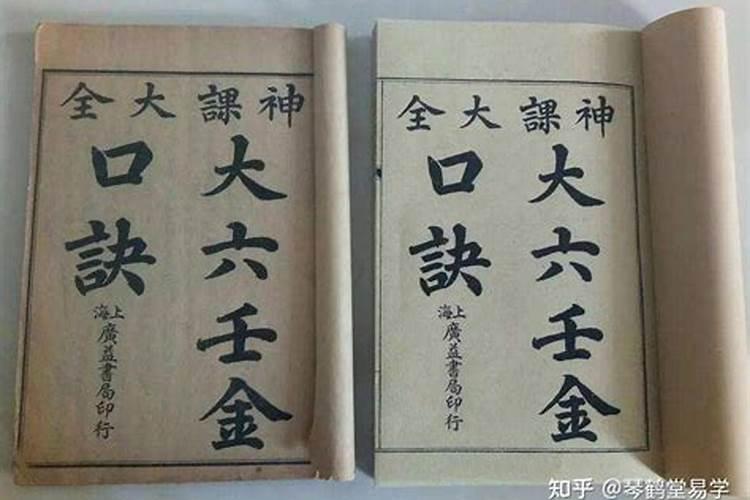 神課大全
大六壬金
口訣
上海
廣益書局印行
神課大全
大六壬金
口訣
上海
廣益書局印行
知乎 @琴鹤堂易学